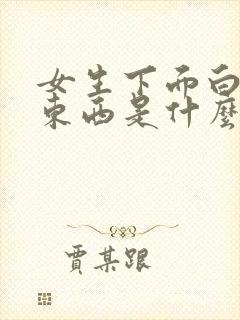 女生下而白
東西是什麼
賈某跟